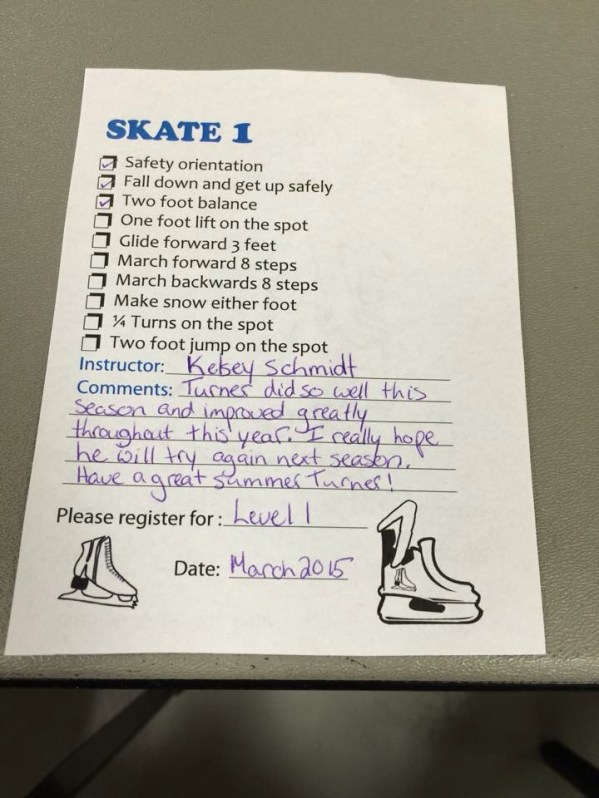 SKATE 1
Safety orientation
Fall down and get up safely
Two foot balance
One foot lift on the spot
Glide forward 3 feet
March forward 8 steps
March backwards 8 steps
Make snow either foot
¼ Turns on the spot
Two foot jump on the spot
Instructor: Kelsey Schmidt
Comments: Turner did so well this
season and improved greatly
throughout this year. I really hope
he will try again next season.
Have a great summer Turner!
Please register for : Level 1
Date: March 2015